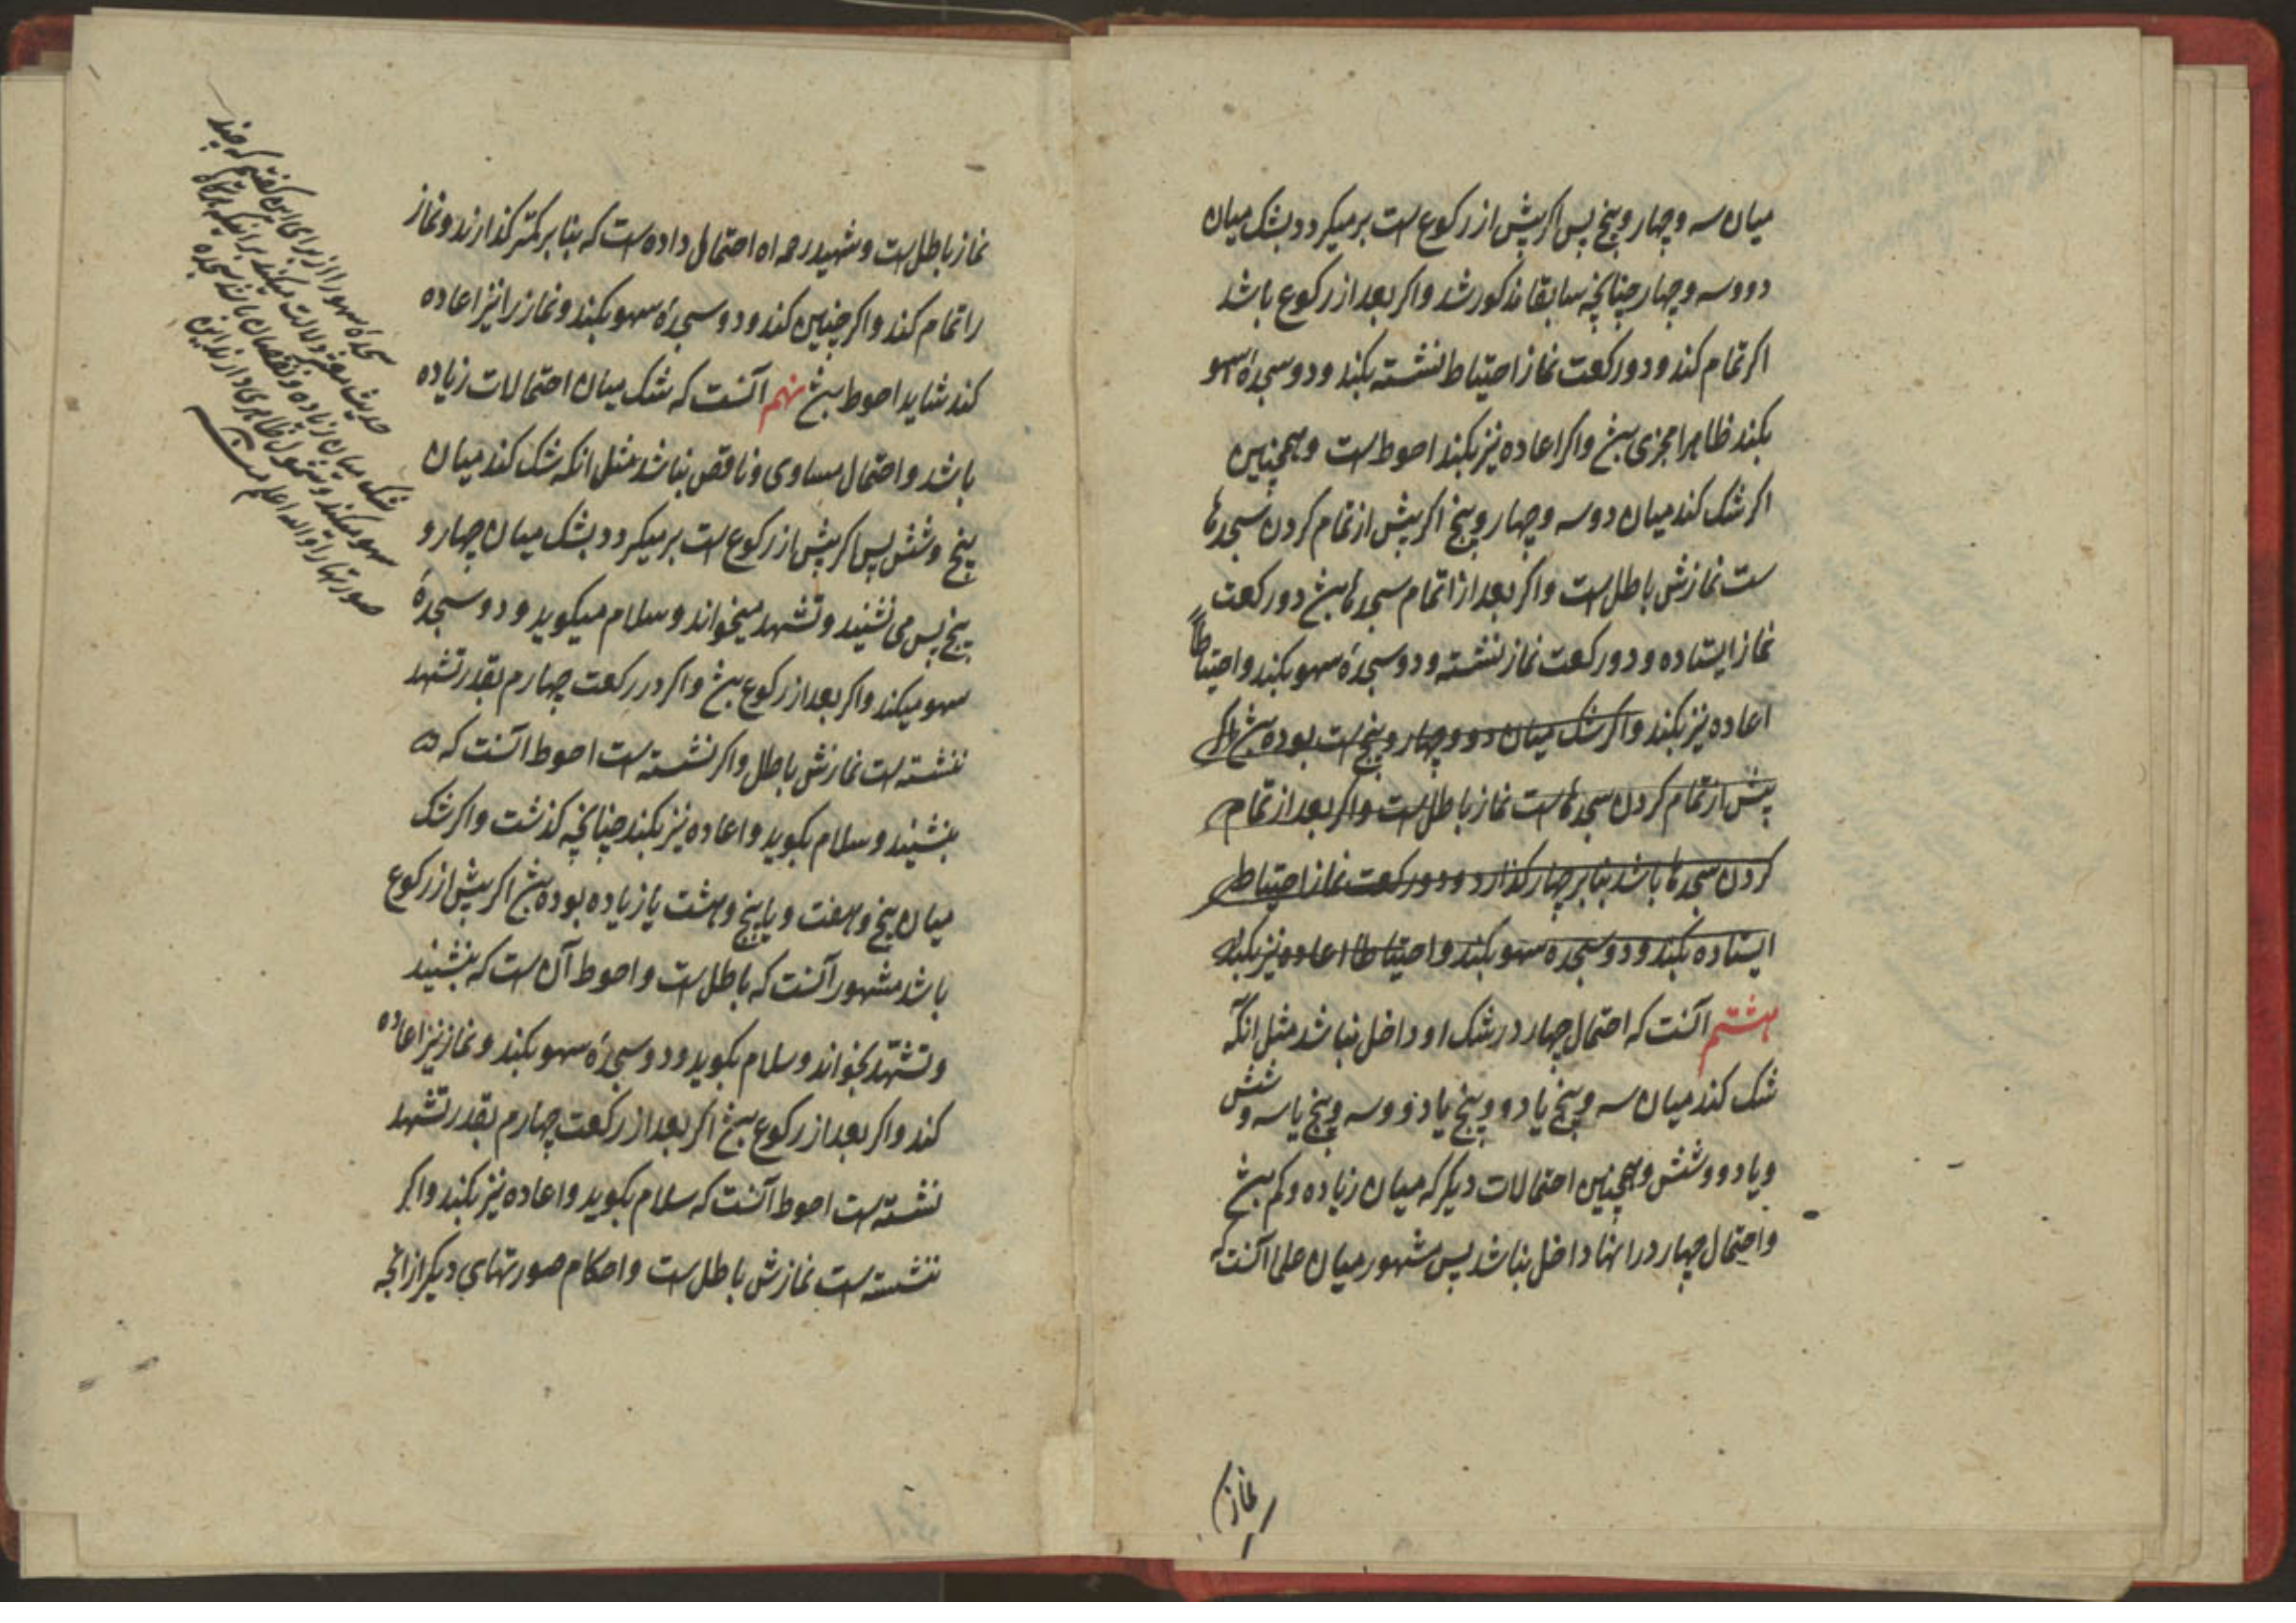 میان سه و چهار و پنج پس اکر پیش از رکوع است برمیکردد بشک میان
دو و سه و چهار چنانچه سابقا مذکور شد و اکر بعد از رکوع باشد
اکر تمام کند و دو رکعت نماز احتیاط نشسته بکند و دو سجدۀ سهو
بکند ظاهرا مجزی بش و اکر اعاده نیز بکند احوط است و همچنین
اکر شک کند میان دو و سه و چهار و پنج اکر پیش از تمام کردن سجدها
ست نمازش باطل است و اکر بعد از اتمام سجدها بش دو رکعت
نماز ایستاده و دو رکعت نماز نشسته و دو سجدۀ سهو بکند و احتیاطاً
اعاده نیز بکند و اکر شک میان دو و چهار و پنج است بوده بش اکر
پیش از تمام کردن سجدها ست نماز باطل است و اکر بعد از تمام
کردن سجدها باشد بنا بر چهار کذارد و دو رکعت نماز احتیاط
ایستاده بکند و دو سجده سهو بکند و احتیاطا اعاده نیز بکند
هشتم آنست که احتمال چهار در شک او داخل نباشد مثل انکه
شک کند میان سه و پنج یا دو و پنج یا دو و سه و پنج یا سه و شش
و یا دو و شش و همچنین احتمالات دیکر که میان زیاده و کم بش
و احتمال چهار در انها داخل نباشد پس مشهور میان علما آنست که
نماز
نماز باطل است و شهید رحمه اه احتمالی داده است که بنا بر کمتر کذارند و نماز
را تمام کند و اکر چنین کند و دو سجدۀ سهو بکند و نماز را نیز اعاده
کند شاید احوط بش نهم آنست که شک میان احتمالات زیاده
باشد و احتمال مساوی و ناقص نباشد مثل انکه شک کند میان
پنج و شش پس اکر پیش از رکوع است برمیکردد بشک میان چهار و
پنج پس می نشیند و تشهد میخواند و سلام میکوید و دو سجدۀ
سهو میکند و اکر بعد از رکوع بش و اکر در رکعت چهارم بقدر تشهد
ننشسته است نمازش باطل و اکر نشسته است احوط آنست که
بنشیند و سلام بکوید و اعاده نیز بکند چنانچه کذشت و اکر شک
میان پنج و هفت و یا پنج و هشت یا زیاده بوده بش اکر پیش از رکوع
باشد مشهور آنست که باطل است و احوط آن است که بنشیند
و تشهّد بخواند و سلام بکوید و دو سجدۀ سهو بکند و نماز نیز اعاده
کند و اکر بعد از رکوع بش اکر بعد از رکعت چهارم بقدر تشهد
نشسته است احوط آنست که سلام بکوید و اعاده نیز بکند و اکر
ننشسته است نمازش باطل است و احکام صورتهای دیکر از انچه
سجدۀ سهو را از برای این کفتم که چند
حدیث معتبر دلالت میکند بر انکه هرکاه
شک میان زیاده و نقصان باشد سجدۀ
سهو میکند و شمول ظاهری دارند این
صورتها را و اله اعلم